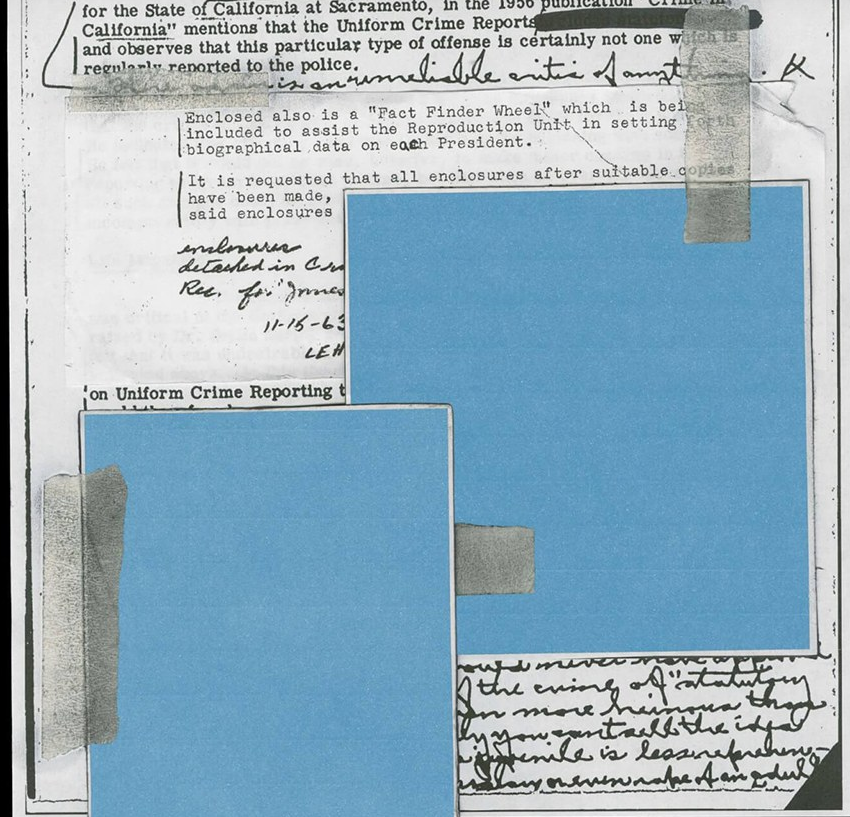 for the State of California at Sacramento, in the 1956 publication "Crime in
California" mentions that the Uniform Crime Reports
and observes that this particular type of offense is certainly not one which is
regularly reported to the police.
is an unreliable critic of anything. K
Enclosed also is a "Fact Finder Wheel" which is being
included to assist the Reproduction Unit in setting forth
biographical data on each President.
It is requested that all enclosures after suitable copies
have been made,
said enclosures
enclosures
detached in
Rec. for
11-15-63
LEH
on Uniform Crime Reporting t
would never have
the crime of "statutory
more heinous than
you can't sell the idea
juvenile is less reprehen-
or even rape of an adult